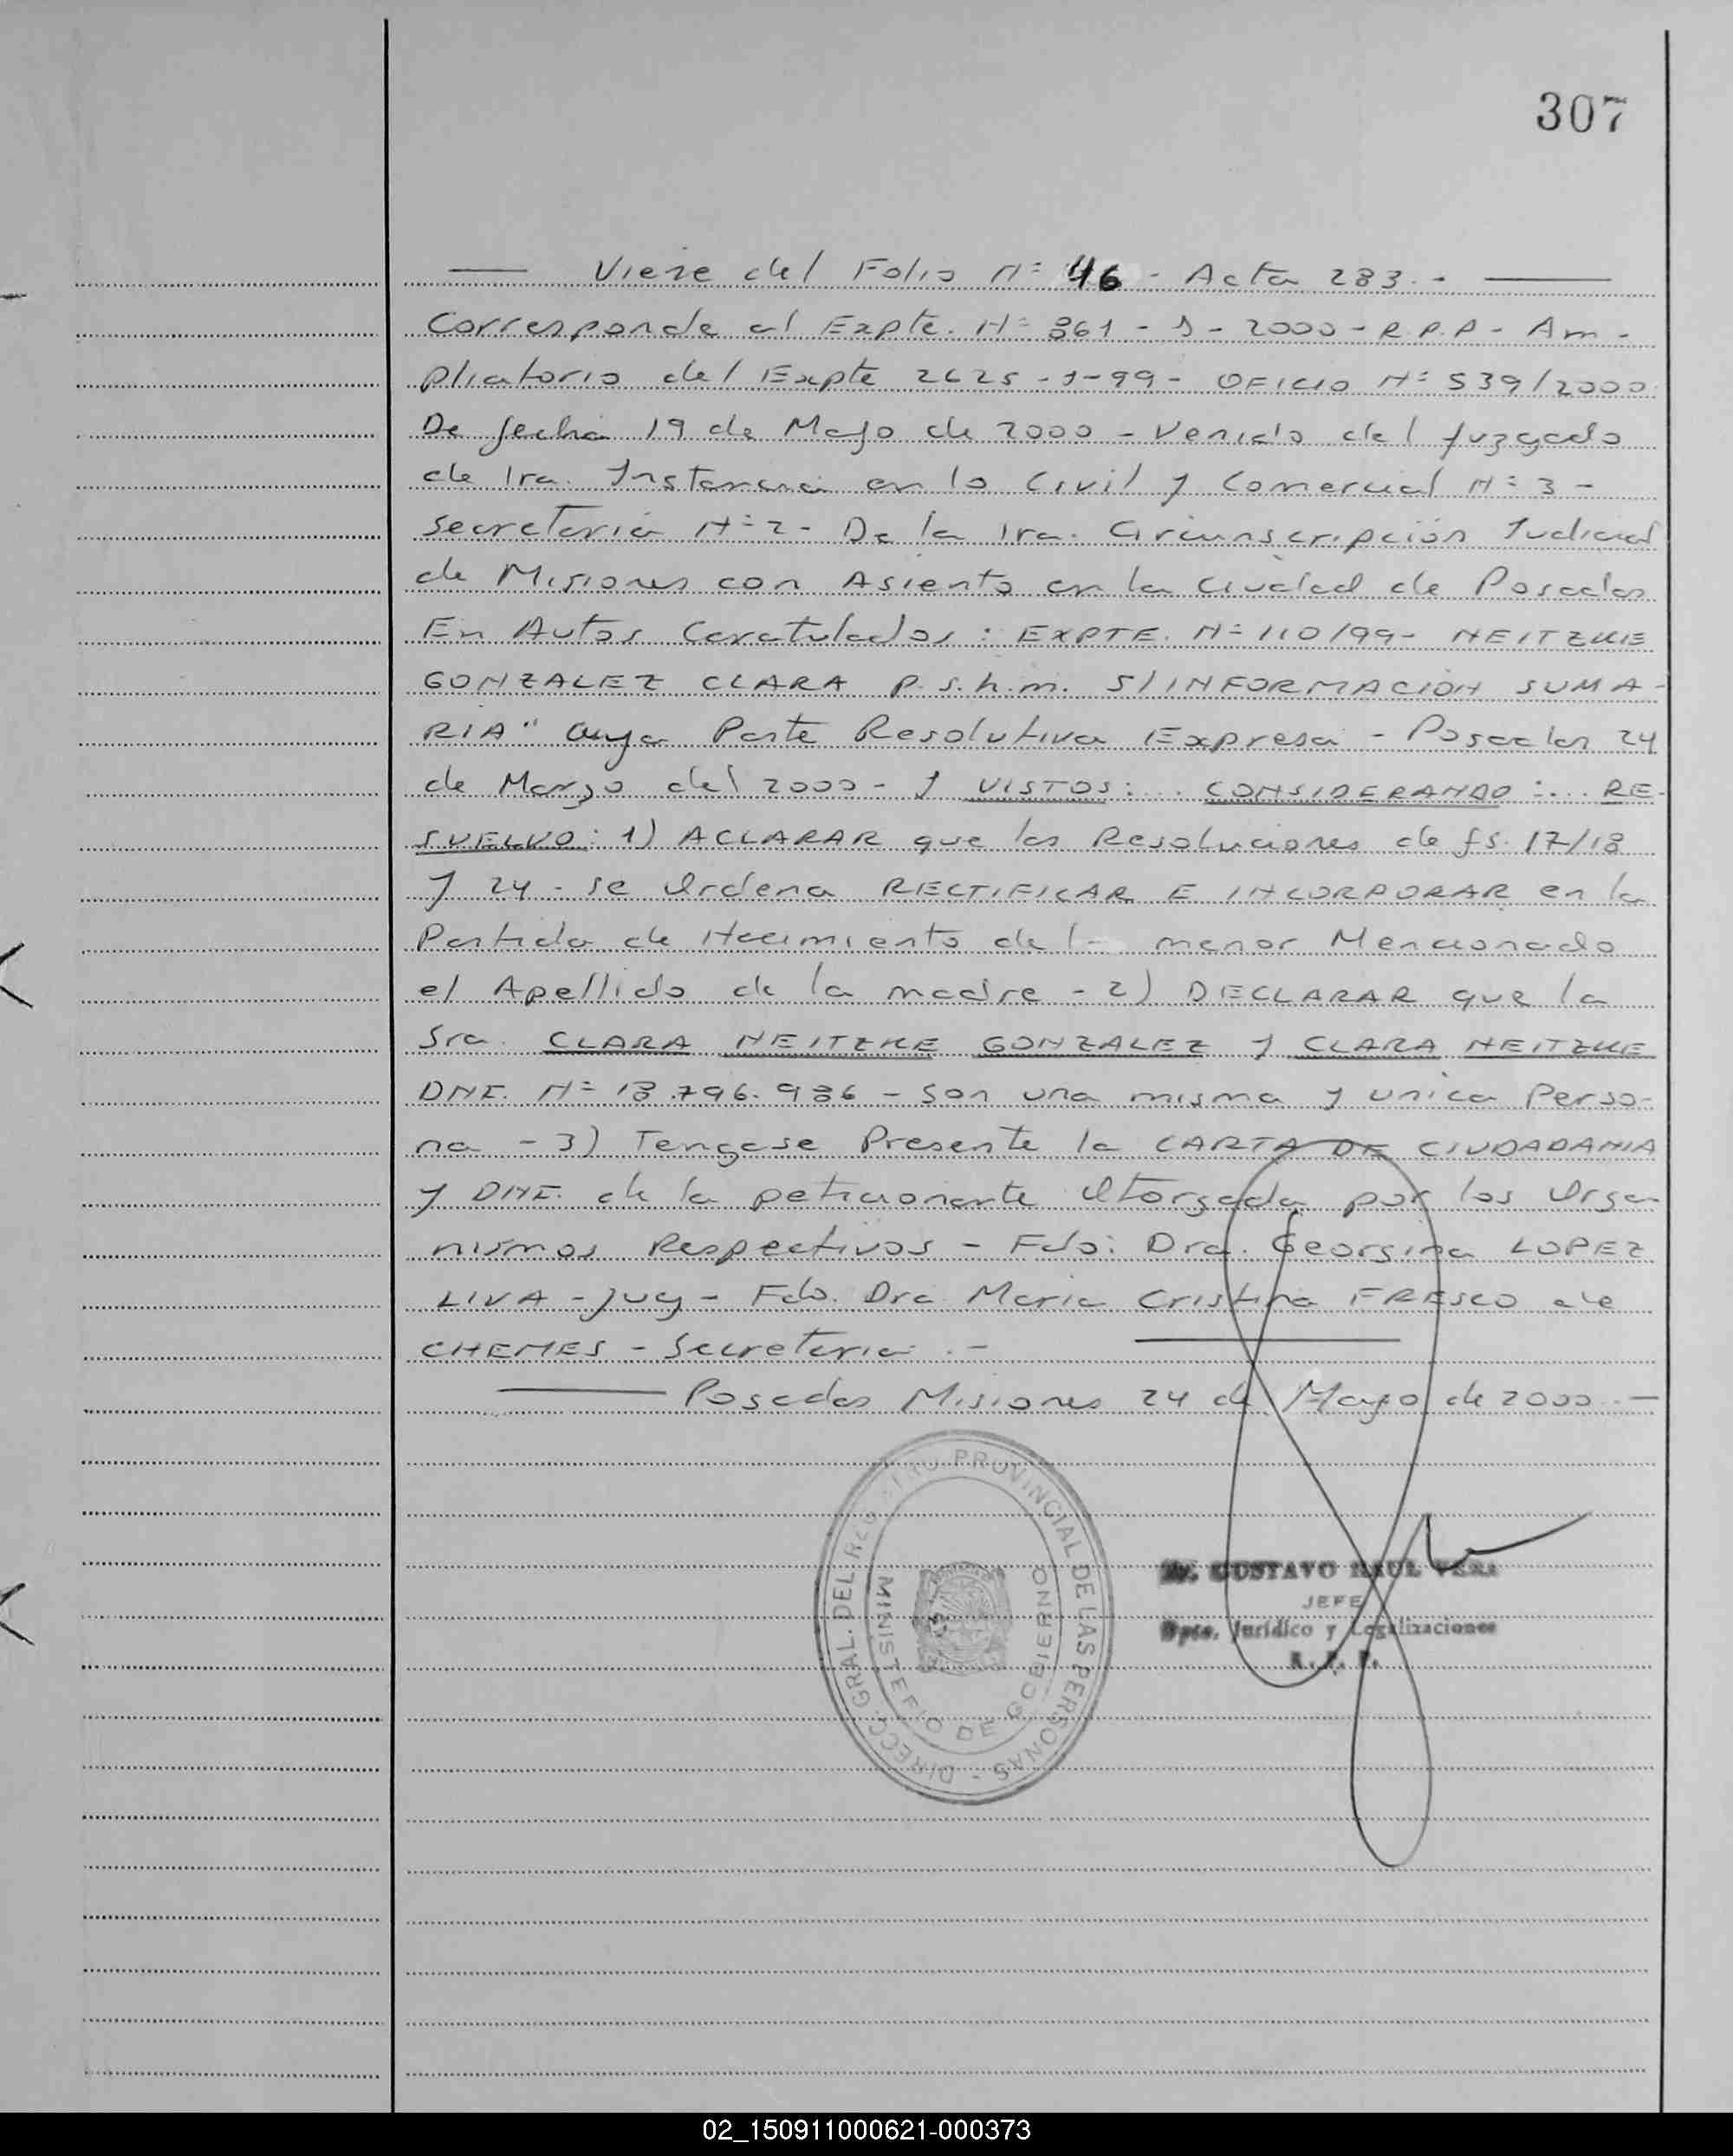 307
Viene del Folio Nº 46 - Acta 283. -
Corresponde al Expte. Nº 861 - D - 2000 - R.P.P - Am -
pliatorio del Expte 2625 - J - 99 - OFICIO Nº 539/2000
De fecha 19 de Mayo de 2000 - Venido del Juzgado
de 1ra. Instancia en lo Civil y Comercial Nº 3 -
secretaria Nº 2 - De la 1ra. Circunscripción Judicial
de Misiones con Asiento en la Ciudad de Posadas
En Autos Caratulados: EXPTE. Nº 110/99 - NEITZKE
GONZALEZ CLARA p.s.h.m. S/INFORMACIÓN SUMA -
RIA" cuya Parte Resolutiva Expresa - Posadas 24
de Marzo del 2000 - Y VISTOS:... CONSIDERANDO:... RE-
SUELVO: 1) ACLARAR que las Resoluciones de fs. 17/18
y 24 - se Ordena RECTIFICAR E INCORPORAR en la
Partida de Nacimiento del - menor Mencionado
el Apellido de la madre - 2) DECLARAR que la
Sra. CLARA NEITZKE GONZALEZ y CLARA NEITZKE
DNI. Nº 18.796.986 - son una misma y unica Perso-
na - 3) Tengase Presente la CARTA DE CIUDADANIA
y DNI. de la peticionante Otorgada por los Orga
nismos Respectivos - Fdo: Dra. Georgina LOPEZ
LIVA - Juez - Fdo. Dra Maria Cristina FRESCO de
CHEMES - Secretaria. -
Posadas Misiones 24 de Mayo de 2000. -
DIRECC. GRAL. DEL REGISTRO PROVINCIAL DE LAS PERSONAS -
MINISTERIO DE GOBIERNO
Dr. GUSTAVO RAUL VERA
JEFE
Dpto. Jurídico y Legalizaciones
R. P. P.
02_150911000621-000373